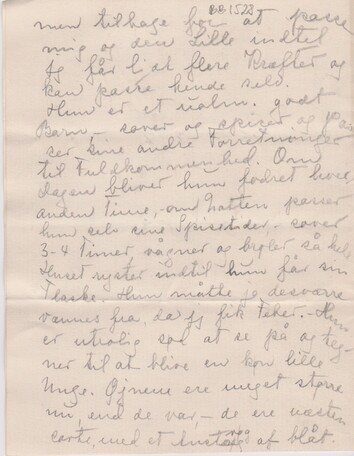 BB1523
men tilbage for at passe
mig og den Lille indtil
jeg får lidt flere Kræfter og
kan passe hende selv.
Hun er et ualm. godt
Barn – sover og spiser og pas
ser sine andre Forretninger
til Fuldkommenhed. Om
Dagen bliver hun fodret hver
anden Time, – om Natten passer
hun selv sine Spisetider, – sover
3-4 Timer, vågner og brøler så hele
Huset ryster indtil hun får sin
Flaske. Hun måtte jo desværre
vænnes fra, da jeg fik Feber. – Hun
er utrolig sød at se på og teg-
ner til at blive en køn lille
Unge. Øjnene ere meget større
nu, end de var, – de ere næsten
sorte, med et af blåt.